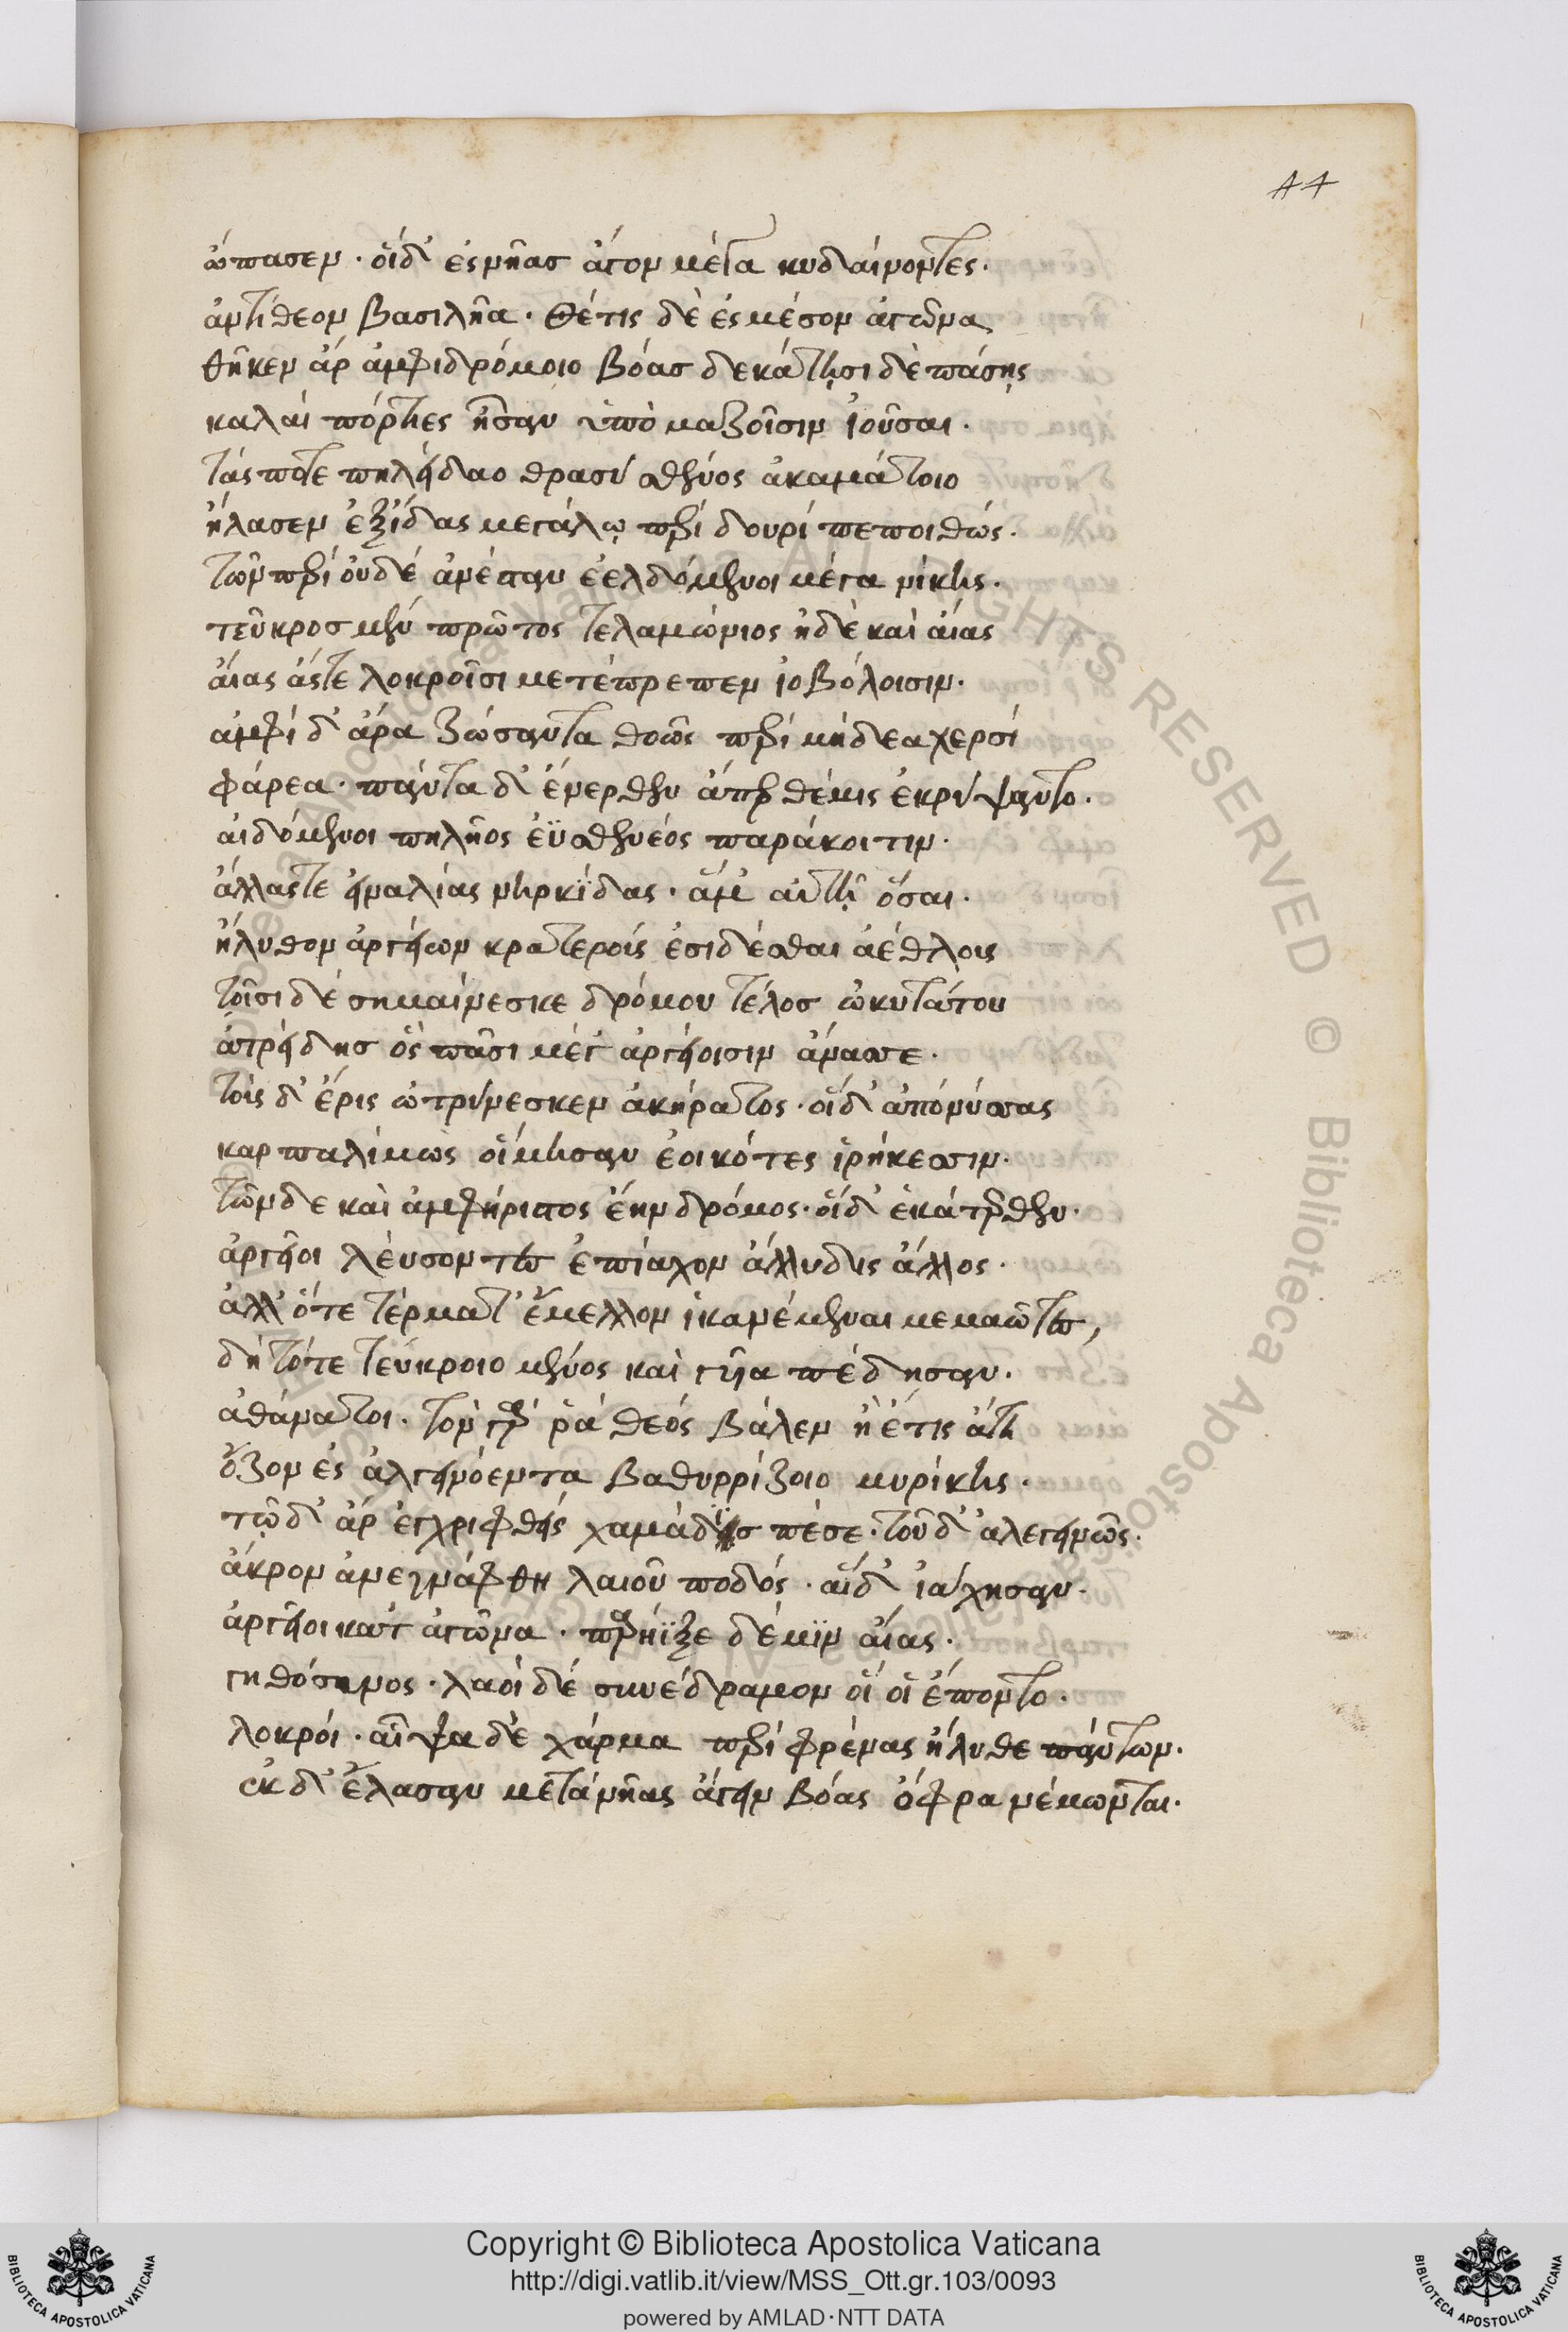 44
ὤπασεν · οἱ δ' ἐς νῆας ἄγον μέγα κυδαίνοντες ·
ἀντίθεον βασιλῆα · Θέτις δὲ ἐς μέσον ἀγῶνα
θῆκεν ἀρ ἀμφιδρόμοιο βόας δέκα τῇσι δὲ πάσῃς
καλαὶ πόρτιες ἦσαν ὑπὸ μαζοῖσιν ἰοῦσαι ·
τάς ποτε πηλείδαο θρασὺ σθένος ἀκαμάτοιο
ἤλασεν ἐξ ἴδας μεγάλῳ περὶ δουρὶ πεποιθώς ·
τῶν περὶ οὐδὲ ἀνέσταν ἐελδόμενοι μέγα νίκης ·
τεῦκρος μὲν πρῶτος τελαμώνιος ἠδὲ καὶ αἴας
αἴας ἅς τε λοκροῖσι μετέπρεπεν ἰοβόλοισιν ·
ἀμφὶ δ' ἄρα ζώσαντα θοῶς περὶ μήδεα χερσὶ
φάρεα · πάντα δ' ἔνερθεν ἅπερ θέμις ἐκρύψαντο ·
αἰδόμενοι πηλῆος ἐϋσθενέος παράκοιτιν ·
ἄλλας τε εἰναλίας νηρηΐδας · ἅμ' αὐτῇ ὅσαι ·
ἤλυθον ἀργείων κρατεροὶς ἐσιδέσθαι ἀέθλοις
τοῖσι δὲ σημαίνεσκε δρόμου τέλος ὠκυτάτου
ἀτρείδης ὃς πᾶσι μέγ' ἀργείοισιν ἄνασσε ·
τοὶς δ' ἔρις ὠτρύνεσκεν ἀκήρατος · οἱ δ' ἀπὸ νύσσας
καρπαλίμως οἴμησαν ἐοικότες ἰρήκεσσιν ·
τῶν δε καὶ ἀμφήριστος ἔην δρόμος · οἱ δ' ἑκάτερθεν ·
ἀργεῖοι λεύσοντες ἐπίαχον ἄλλυδις ἄλλος ·
ἀλλ' ὅτε τέρματ' ἔμελλον ἱκανέμεναι μεμαῶτες,
δὴ τότε τεύκροιο μένος καὶ γῦια πέδησαν ·
ἀθάνατοι · τὸν γάρ ῥα θεὸς βάλεν ἠέ τις ἄτη
ὄζον ἐς ἀλγεινόεντα βαθυρρίζοιο μυρίκης ·
τῷ δ' ἀρ ἐγχριφθεὶς χαμάδις πέσε · τοῦ δ' ἀλεγεινῶς ·
ἄκρον ἀνεγνάφθη λαιοῦ ποδός · αἱ δ' ἰάχησαν ·
ἀργεῖοι κατ' ἀγῶνα · παρήϊξε δέ μϊν αἴας ·
γηθόσυνος · λαοὶ δὲ συνέδραμον οἵ οἱ ἕποντο ·
λοκροί · αἶψα δὲ χάρμα περὶ φρένας ἤλυθε πάντων ·
ἐκ δ' ἔλασαν μετὰ νῆας ἄγειν βόας ὄφρα νέμωνται ·
Copyright © Biblioteca Apostolica Vaticana
http://digi.vatlib.it/view/MSS_Ott.gr.103/0093
powered by AMLAD·NTT DATA